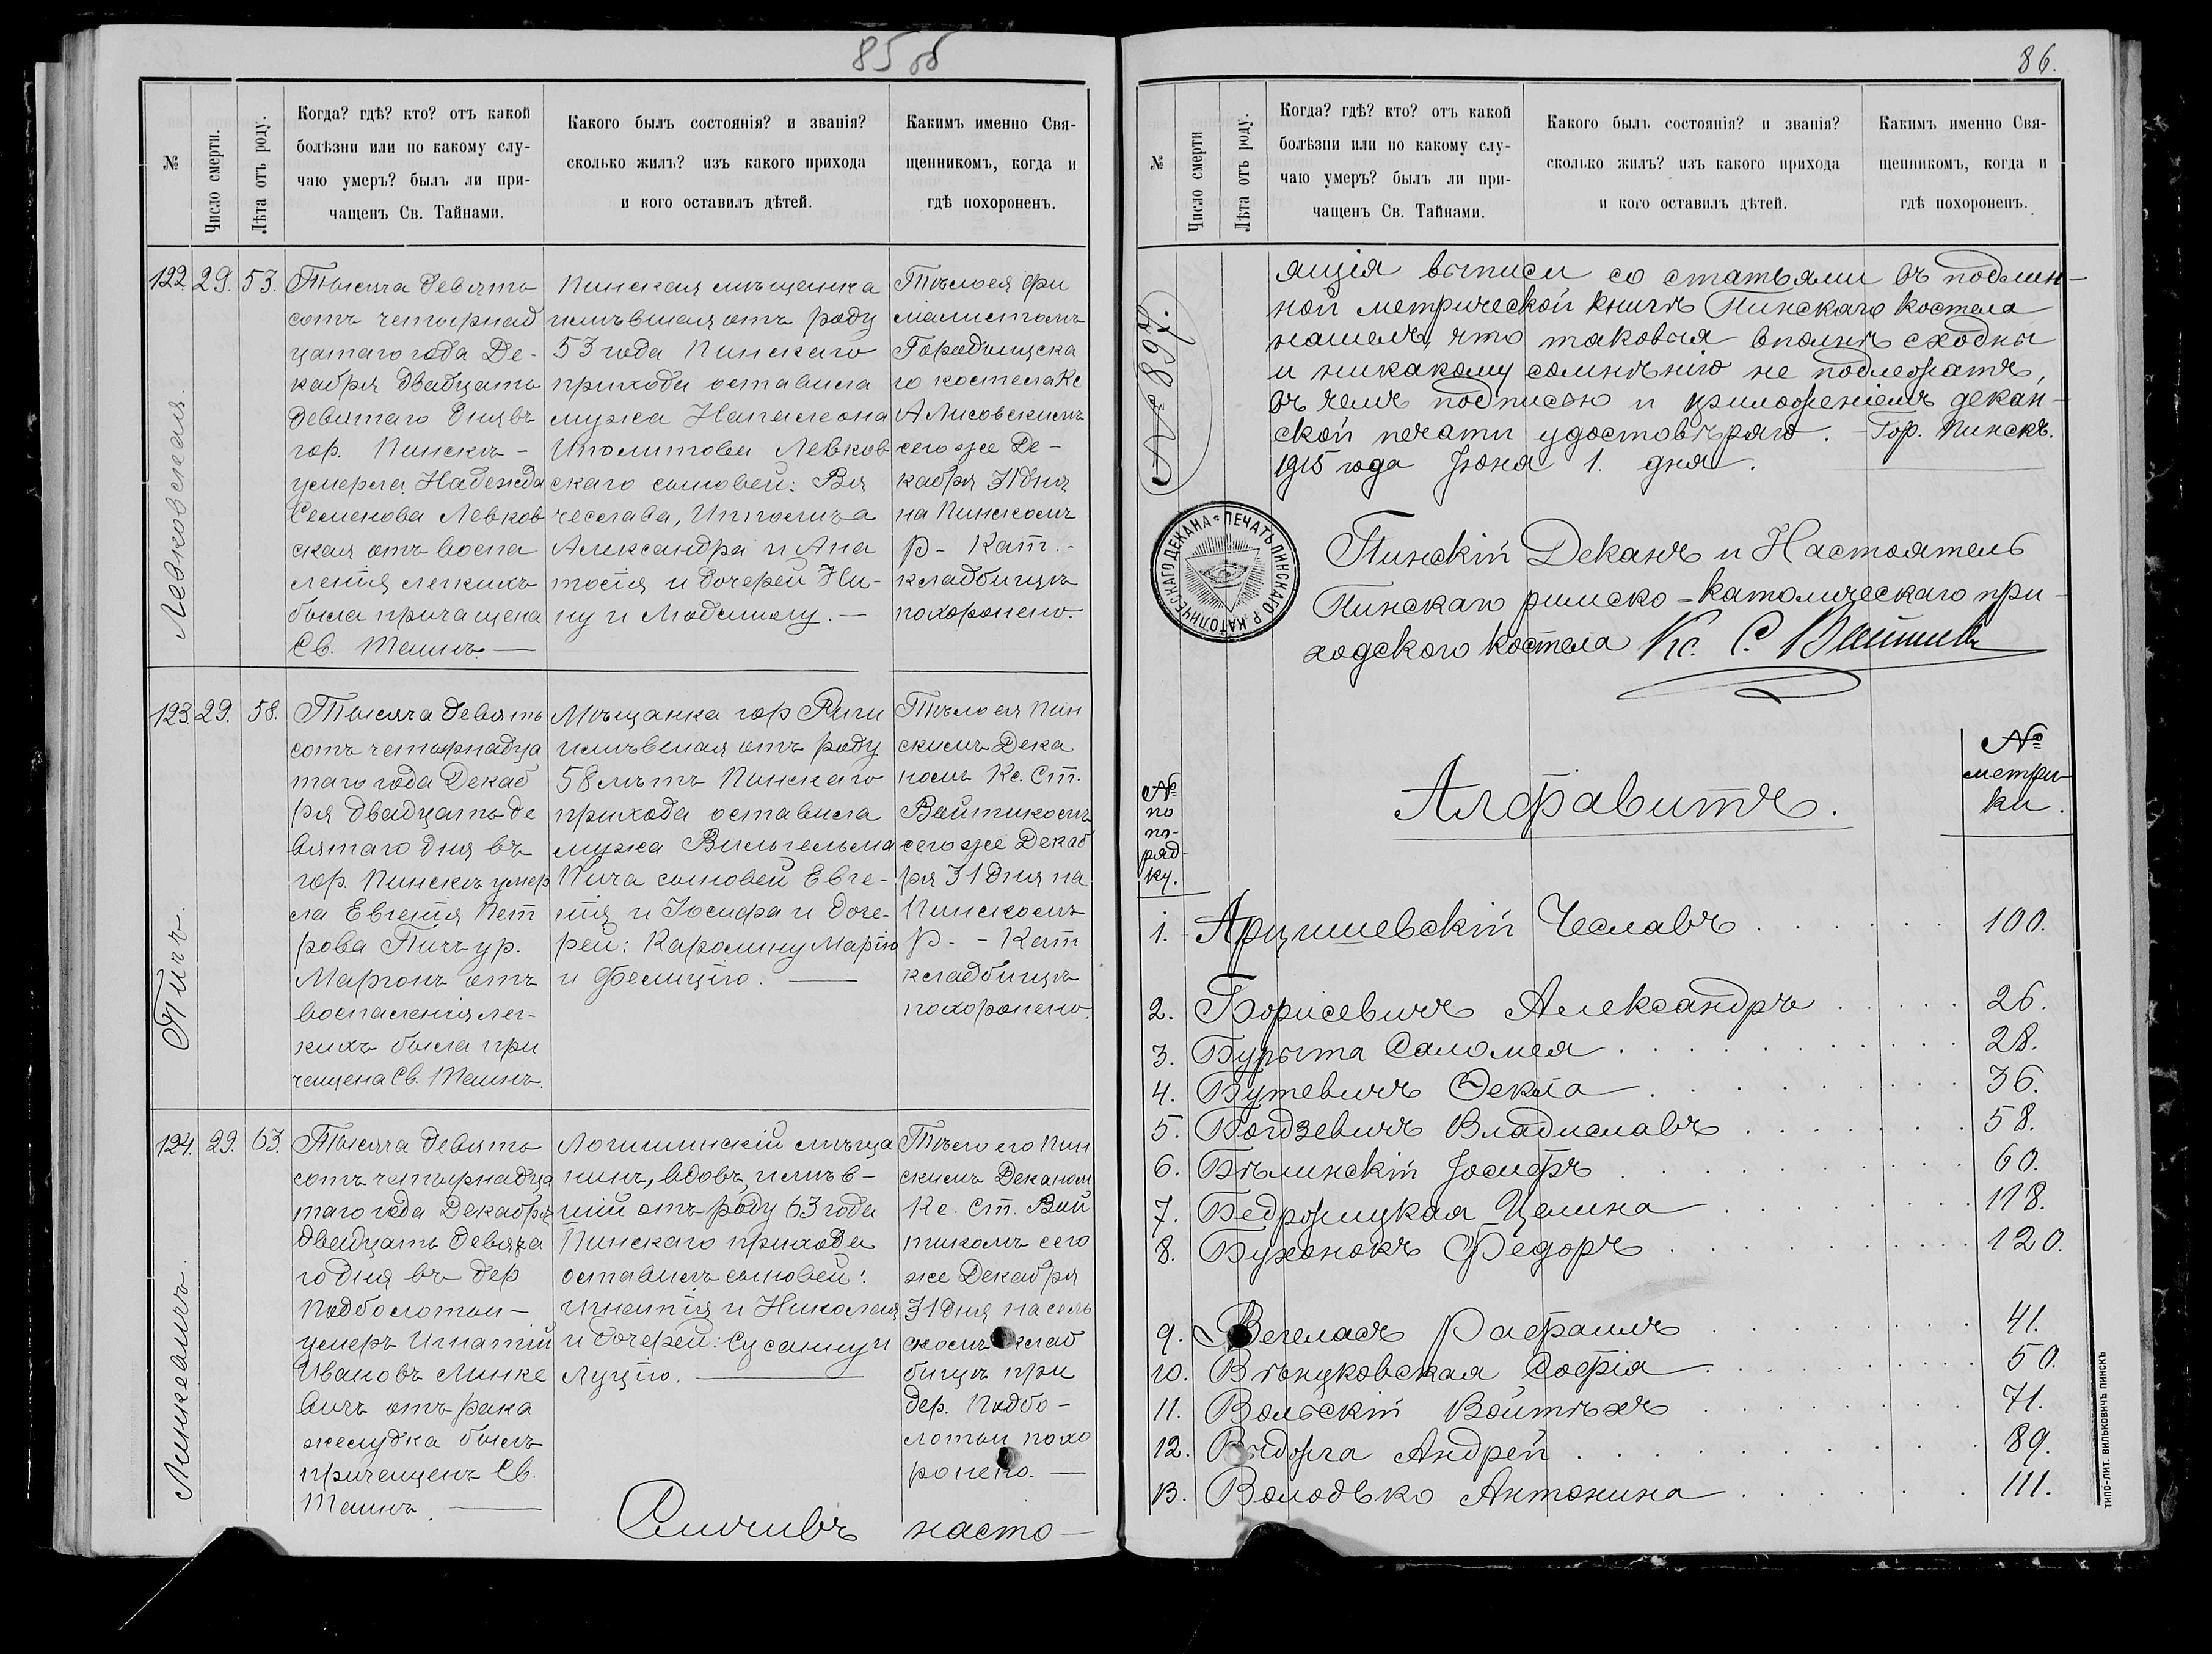 85 об
№
Число смерти.
Лѣта отъ роду.
Когда? гдѣ? кто? отъ какой
болѣзни или по какому слу-
чаю умеръ? былъ ли при-
чащенъ Св. Тайнами.
Какого былъ состоянія? и званія?
сколько жилъ? изъ какого прихода
и кого оставилъ дѣтей.
Какимъ именно Свя-
щенникомъ, когда и
гдѣ похороненъ.
122. 29. 53.
Левковская.
Тысяча девять
сотъ четырнад
цатаго года Де-
кабря двадцать
девятаго дня въ
гор. Пинскѣ -
умерла Надежда
Семенова Левков
ская отъ воспа
ленія легкихъ
была причащена
Св. Таинъ. —
Пинская мѣщанка
имѣвшая отъ роду
53 года Пинскаго
прихода оставила
мужа Наполеона
Иполитова Левков
скаго сыновей: Вя
чеслава, Ипполита
Александра и Ана
толія и дочерей Ни-
ну и Людмилу. —
Тѣло ея фи
мистомъ
Городищска
го костела Кс
А Лисовскимъ
сего же Де-
кабря 31 дня
на Пинскомъ
Р- Кат.-
кладбищѣ
похоронено.
123. 29. 58.
Пичъ.
Тысяча девять
сотъ четырнадца
таго года Декаб
ря двадцать де
вятаго дня въ
гор. Пинскѣ умер
ла Евгенія Пет
рова Пичъ ур.
Маргонъ отъ
воспаленія лег-
кихъ была при
чащена Св. Таинъ.
Мѣщанка гор Риги
имѣвшая отъ роду
58 лѣтъ Пинскаго
прихода оставила
мужа Вильгельма
Пича сыновей Евге-
нія и Іосифа и доче-
рей: Каролину Марію
и Фелицію. —
Тѣло ея Пин
скимъ Дека
номъ Кс. Ст.
Войтикомъ
сего же Декаб
ря 31 дня на
Пинскомъ
Р. - Кат
кладбищѣ
похоронено.
124. 29. 63.
Линкевичъ.
Тысяча девять
сотъ четырнадца
таго года Декабря
двадцать девята
го дня въ дер
Подболотьи -
умеръ Игнатій
Ивановъ Линке
вичъ отъ рака
желудка былъ
причащенъ Св.
Таинъ. —
Логишинскій мѣща
нинъ, вдовъ, имѣв-
шій отъ роду 63 года
Пинскаго прихода
оставилъ сыновей:
Игнатія и Николая
и дочерей: Сусанну и
Луцію. —
Тѣло его Пин
скимъ Деканом
Кс. Ст. Вой
тикомъ сего
же Декабря
31 дня на сель
скомъ клад
бищѣ при
дер. Подбо-
лотьи похо
ронено. —
Сличивъ насто-
86.
№
Число смерти
Лѣта отъ роду.
Когда? гдѣ? кто? отъ какой
болѣзни или по какому слу-
чаю умеръ? былъ ли при-
чащенъ Св. Тайнами.
Какого былъ состоянія? и званія?
сколько жилъ? изъ какого прихода
и кого оставилъ дѣтей.
Какимъ именно Свя-
щенникомъ, когда и
гдѣ похороненъ.
№ 897.
ящія выписи со статьями въ подлин-
ной метрической книгѣ Пинскаго костела
нашелъ, что таковыя вполнѣ сходны
и никакому сомнѣнію не подлежатъ,
въ чемъ подписью и приложеніемъ декан-
ской печати удостовѣряю. Гор. Пинскъ.
1915 года Іюня 1. дня.
ПЕЧАТЬ ПИНСКАГО Р. КАТОЛИЧЕСКАГО ДЕКАНА
Пинскій Деканъ и Настоятель
Пинскаго римско-католическаго при-
ходского костела Кс. С. Войтик
№
по
по-
ряд-
ку.
Алфавитъ.
№
метри-
ки.
1. Арцишевскій Чеславъ . . . . . . 100.
2. Борисевичъ Александръ . . . . . 26.
3. Бурыта Саломея . . . . . . . . . 28.
4. Бутевичъ Ѳекла . . . . . . . . . 36.
5. Богдзевичъ Владиславъ . . . . . . . 58.
6. Бѣлинскій Іосифъ . . . . . . . . . 60.
7. Бедрожицкая Целина . . . . . . . . 118.
8. Бухонокъ Федоръ . . . . . . . . . 120.
9. Вегеласъ Рафаилъ . . . . . . . . 41.
10. Вѣнцковская Софія . . . . . . . . . 50.
11. Вольскій Войтѣхъ . . . . . . . . 71.
12. Выдрга Андрей . . . . . . . . . 89.
13. Володько Антонина . . . . . . 111.
ТИПО-ЛИТ. ВИЛЬКОВИЧЪ ПИНСКЪ